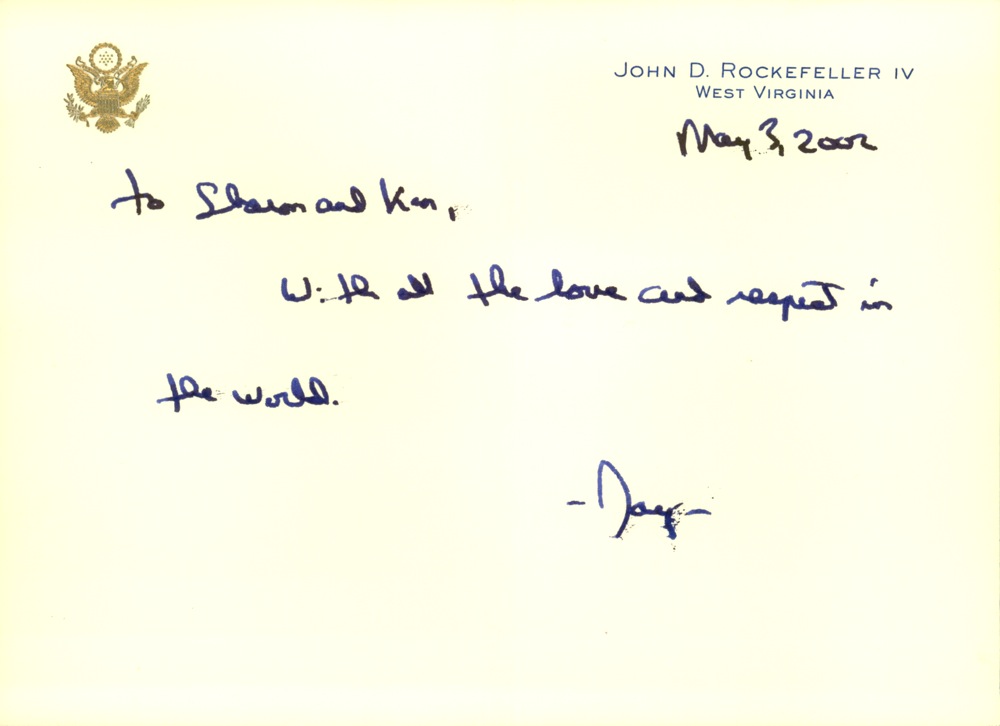 JOHN D. ROCKEFELLER IV
WEST VIRGINIA
May 3, 2002
To Sharon and Ken,
With all the love and respect in
the world.
-Jay-